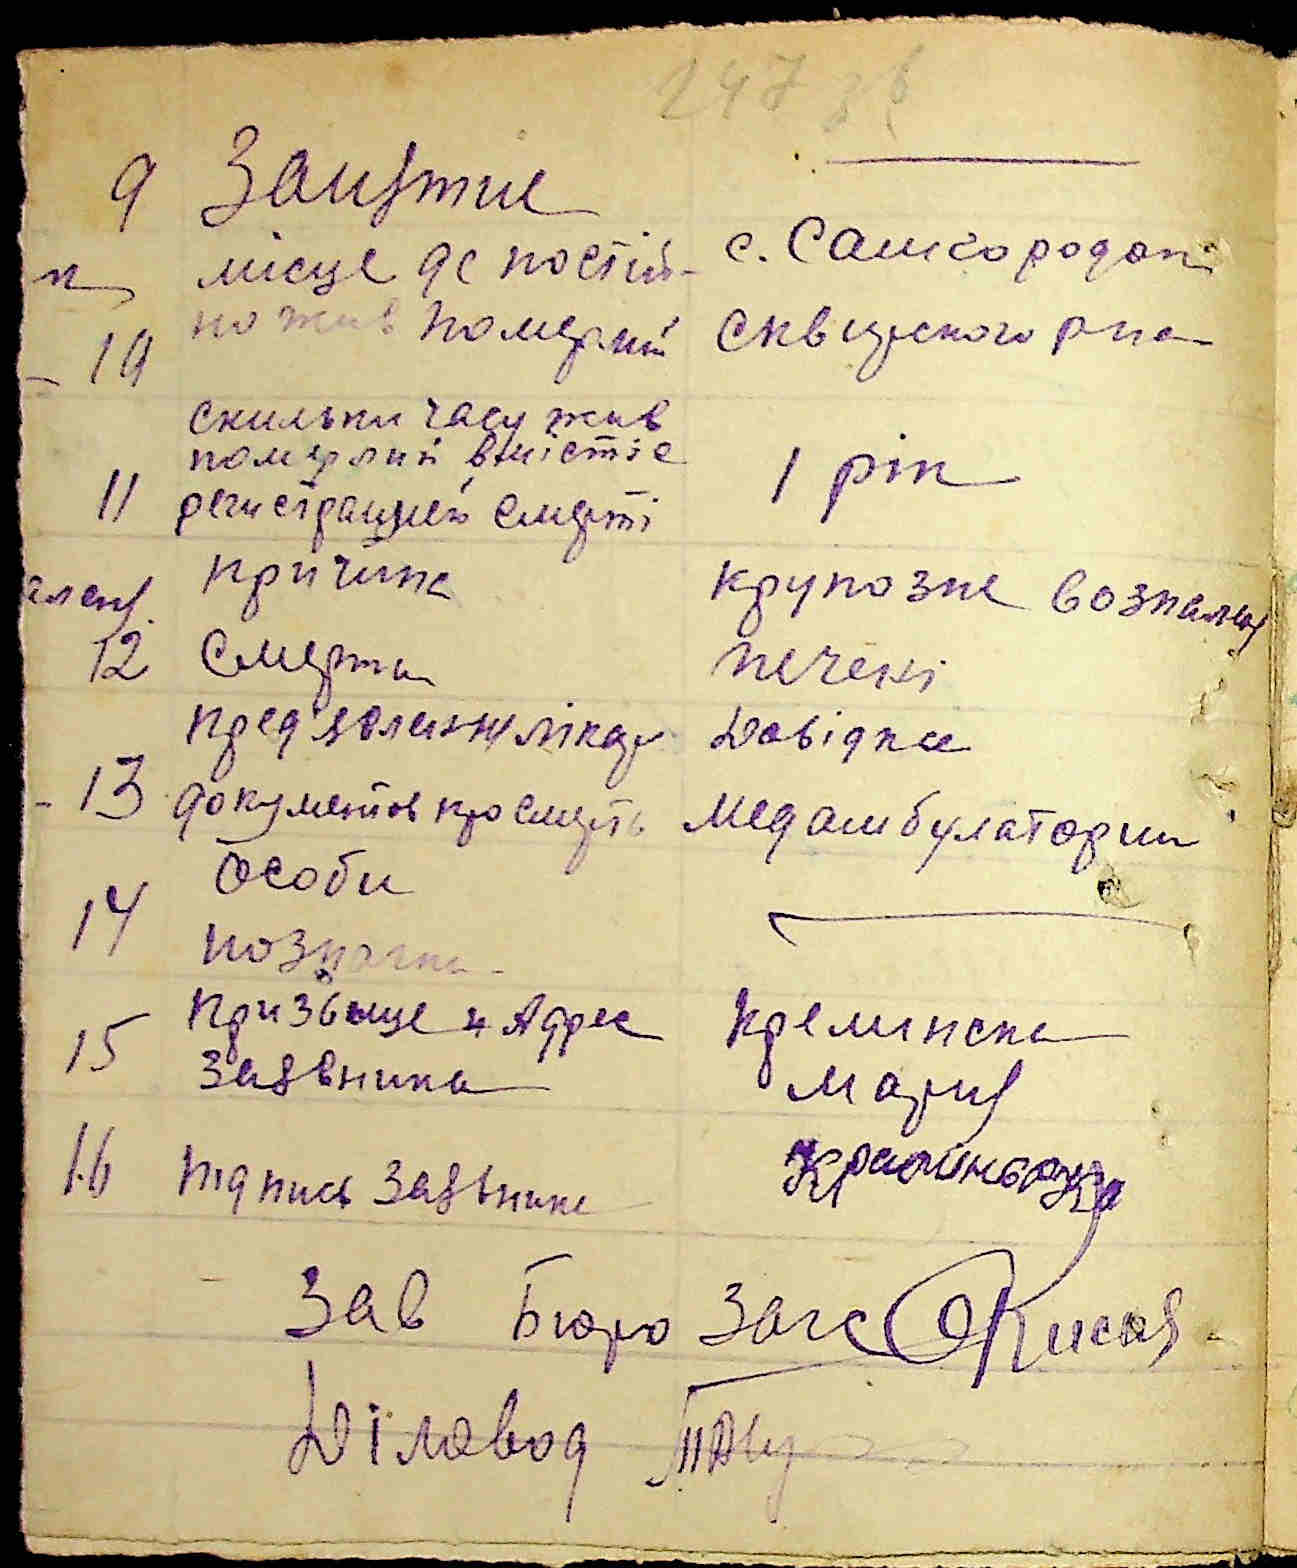 247 зв
9 Занятие
місце де постій- с. Самгородок
но жив померлий Сквирского р-на
10
скильки часу жив
померлий в місті е 1 рік
11 регистрацией смерті
причина крупозне возпалення
12 Смерти печені
пред'явленн лікар Довідка
13 документов про смерть Медамбулатории
особи
14
позначки
призвыще и Адрес Креминска
15
Заявника Мария
16 підпись Заявника
Зав Бюро Загс
Діловод